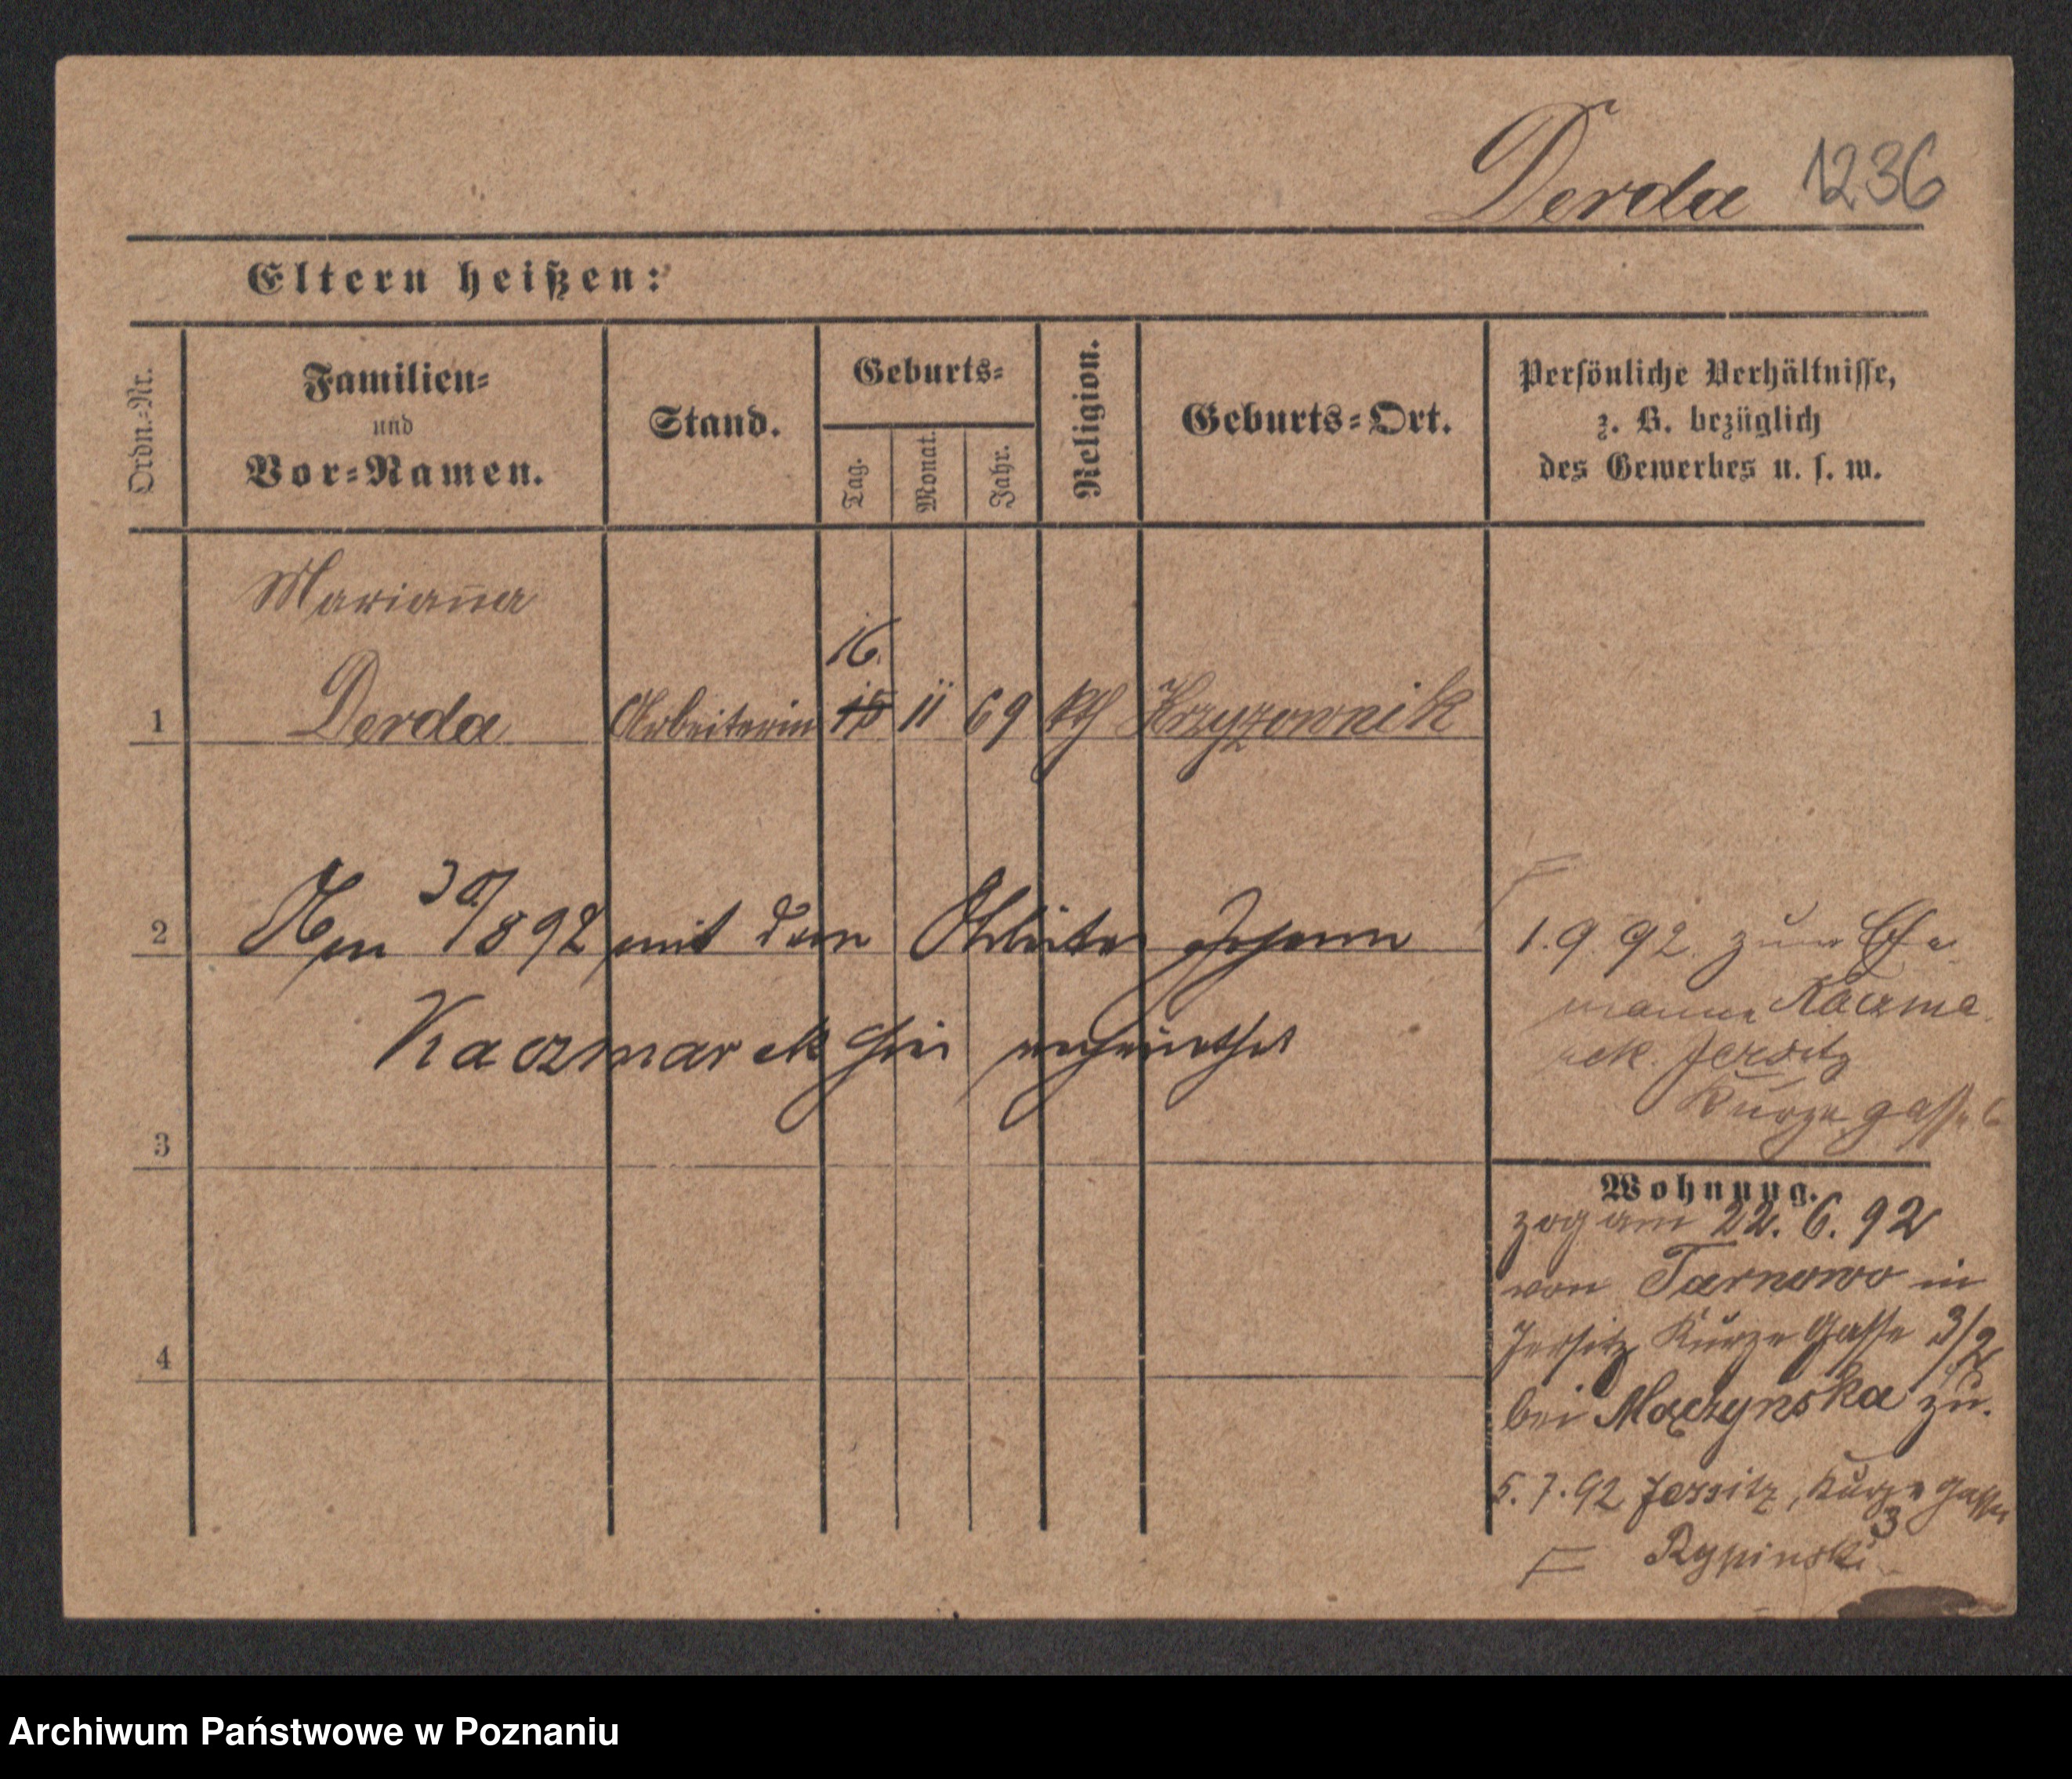 Derda 1236
Eltern heißen:
Ordn.-Nr.
Familien-
und
Vor-Namen.
Stand.
Geburts-
Tag.
Monat.
Jahr.
Religion.
Geburts-Ort.
Persönliche Verhältnisse,
z. B. bezüglich
des Gewerbes u. s. w.
Marianna
16.
1 Derda Arbeiterin 15 11 69 kth Krzyzownik
2 Am 30/8 92 mit dem Arbeiter Johann
Kaczmarek hier verheirathet
3
4
1. 9. 92. zum Ehe
manne Kaczma
rek. Jersitz
Kurze gasse
Wohnung.
zog am 22. 6. 92
von Tarnowo in
Jersitz Kurze Gasse 3/2
bei Maczynska zu.
5. 7. 92 Jersitz, Kurze Gasse
3
Rypinski
Archiwum Państwowe w Poznaniu